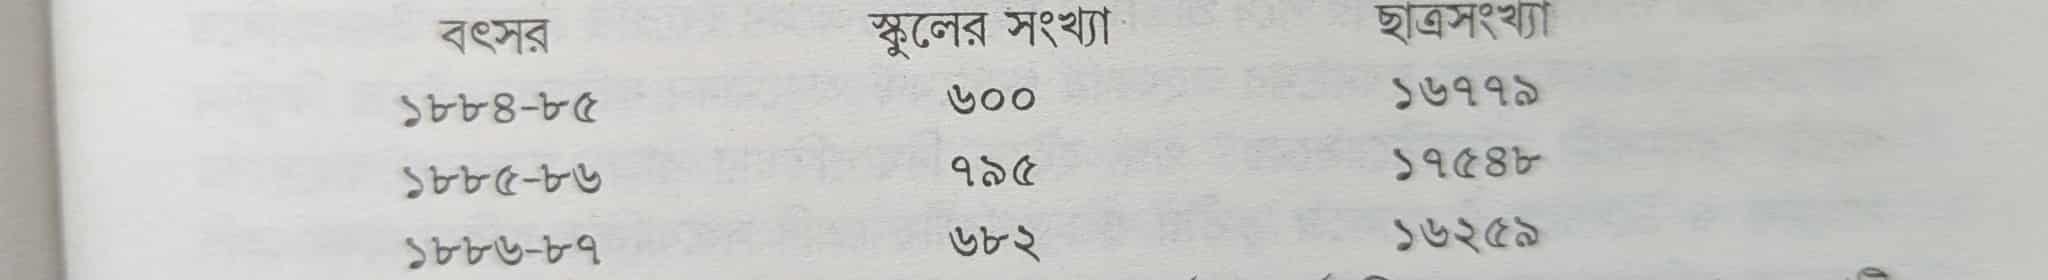 বৎসর স্কুলের সংখ্যা ছাত্রসংখ্যা
১৮৮৪-৮৫ ৬০০ ১৬৭৭৯
১৮৮৫-৮৬ ৭৯৫ ১৭৫৪৮
১৮৮৬-৮৭ ৬৮২ ১৬২৫৯